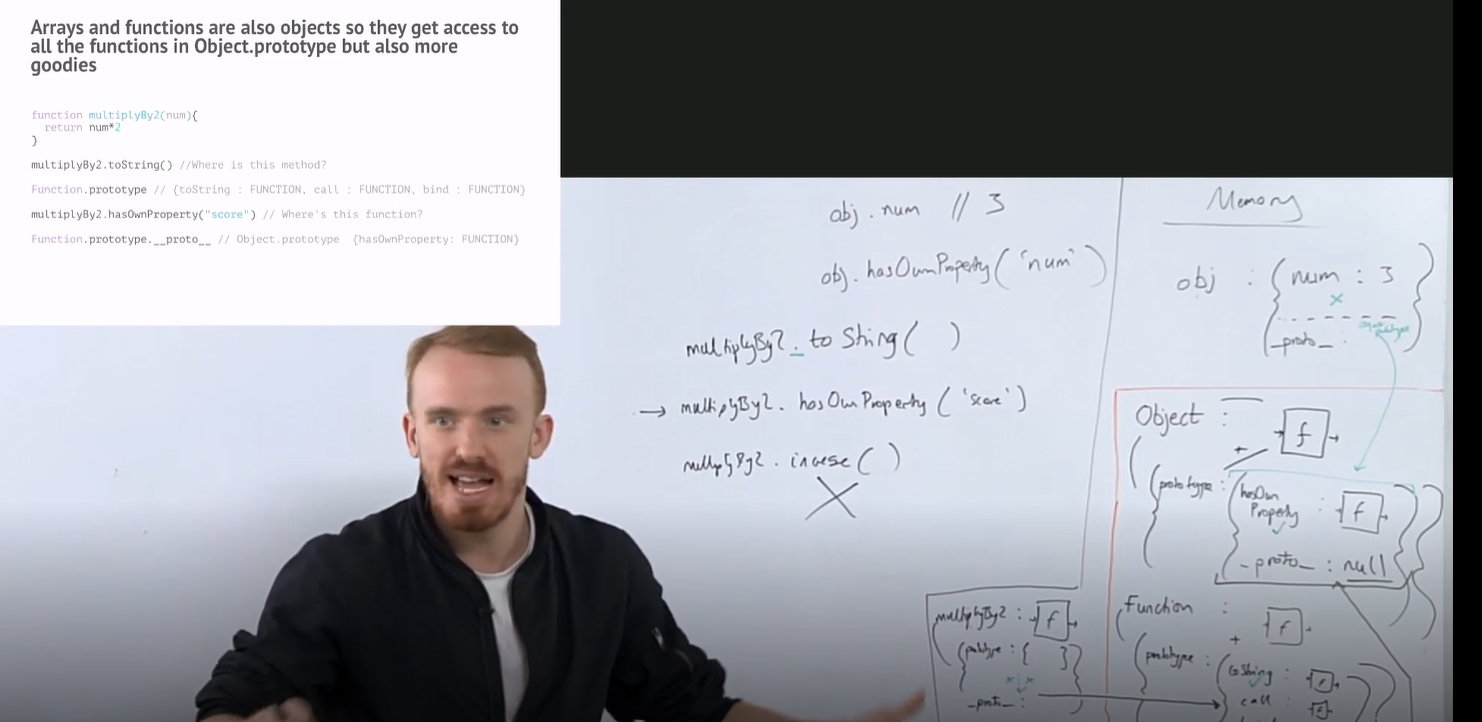 Arrays and functions are also objects so they get access to
all the functions in Object.prototype but also more
goodies
function multiplyBy2(num){
return num*2
}
multiplyBy2.toString() //Where is this method?
Function.prototype // {toString : FUNCTION, call : FUNCTION, bind : FUNCTION}
multiplyBy2.hasOwnProperty("score") // Where's this function?
Function.prototype.__proto__ // Object.prototype {hasOwnProperty: FUNCTION}
obj . num // 3
obj. hasOwnProperty( 'num' )
multiplyBy2 . toString( )
→ multiplyBy2 . hasOwnProperty ( 'score' )
multiplyBy2 . ( )
Memory
obj : { num : 3 }
_proto_ :
Object : f
+
{ prototype : { hasOwn
Property : f
_proto_ : null
multiplyBy2 : f
{ prototype : { } }
_proto_ :
Function : f
+
prototype : { toString : f
call : f